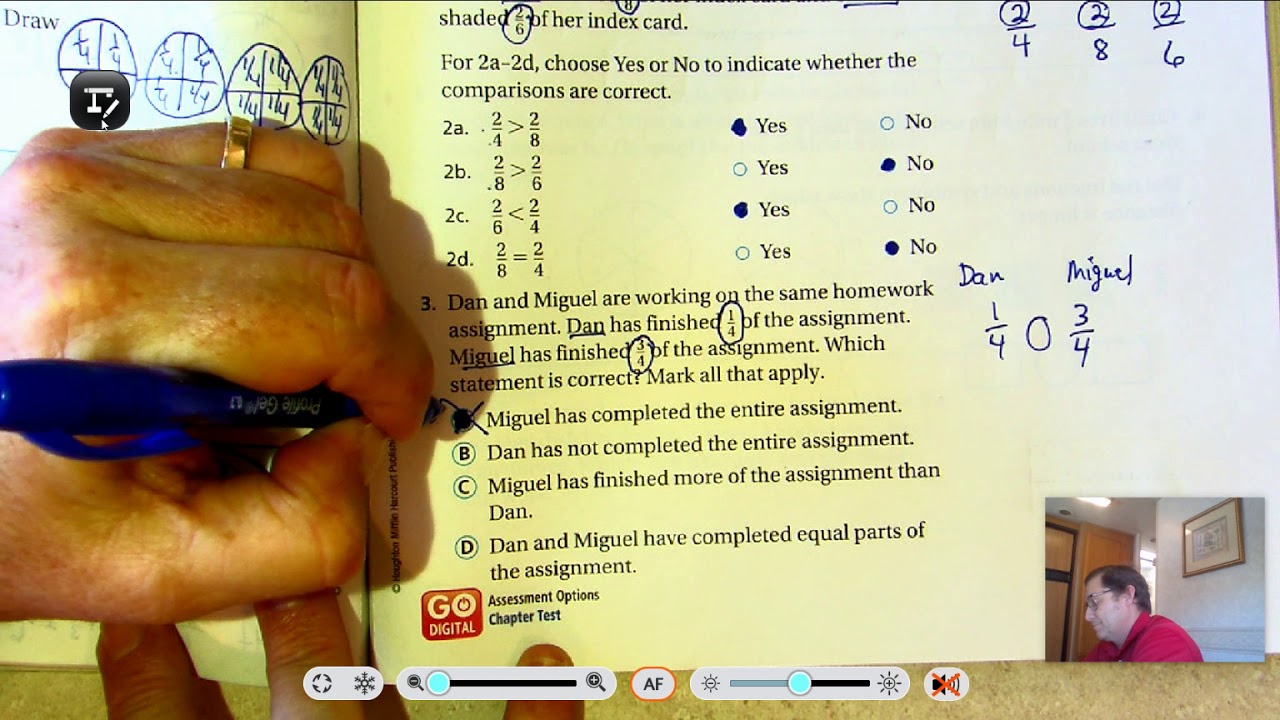 Draw
1/4 1/4
1/4 1/4
1/4 1/4
1/4 1/4
1/4 1/4
1/4 1/4
1/4 1/4
shaded 2/6 of her index card.
2/4 2/8 2/6
For 2a–2d, choose Yes or No to indicate whether the
comparisons are correct.
2a. 2/4 > 2/8 Yes No
2b. 2/8 > 2/6 Yes No
2c. 2/6 < 2/4 Yes No
2d. 2/8 = 2/4 Yes No
3. Dan and Miguel are working on the same homework
assignment. Dan has finished 1/4 of the assignment.
Miguel has finished 3/4 of the assignment. Which
statement is correct? Mark all that apply.
Dan Miguel
1/4 3/4
Miguel has completed the entire assignment.
B Dan has not completed the entire assignment.
C Miguel has finished more of the assignment than
Dan.
D Dan and Miguel have completed equal parts of
the assignment.
GO
DIGITAL
Assessment Options
Chapter Test
© Houghton Mifflin Harcourt
Profile Gel
AF